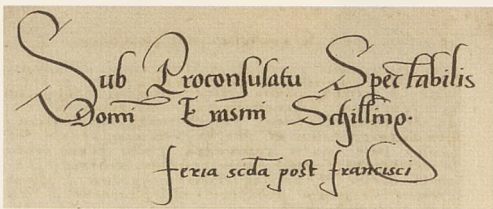 Sub Proconsulatu Spectabilis
Domī Erasmi Schilling.
feria scđa post francisci